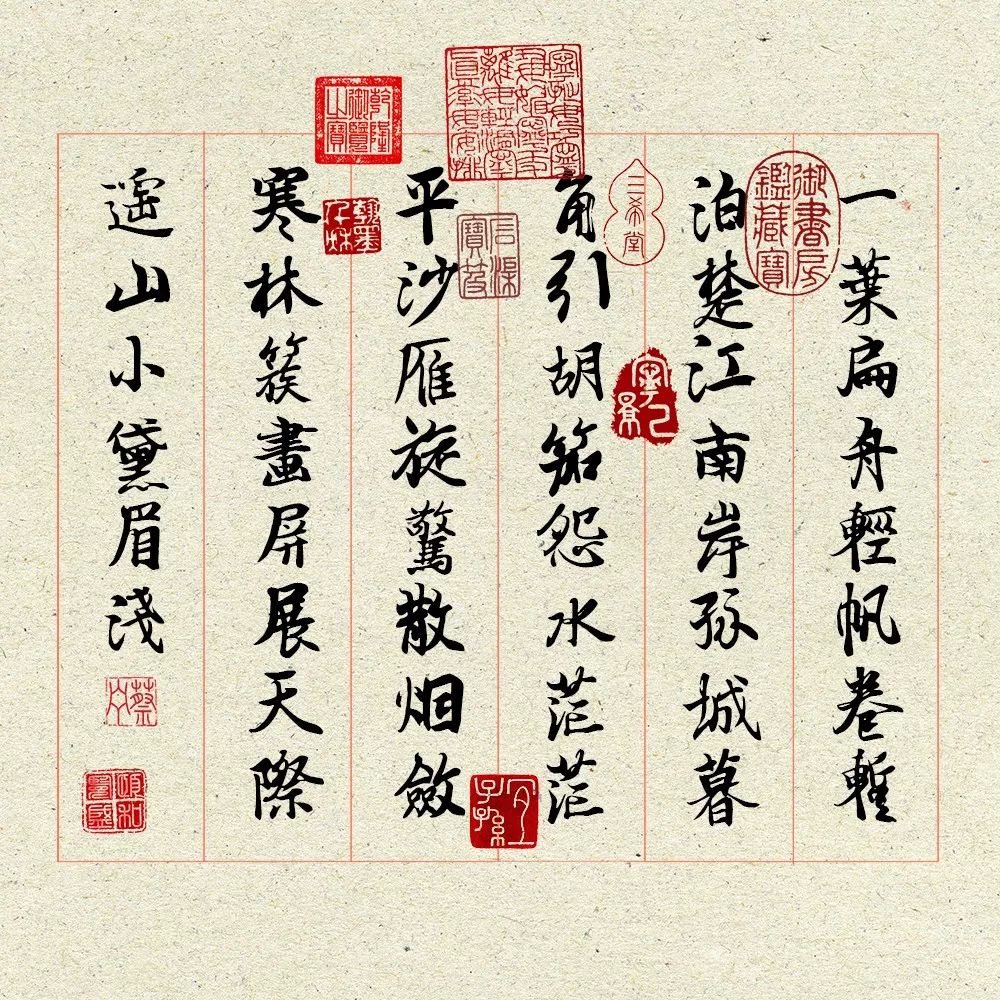 一葉扁舟輕帆卷暫
泊楚江南岸孤城暮
角引胡笳怨水茫茫
平沙雁旋驚散烟斂
寒林簇畫屏展天際
遥山小黛眉淺
御書房鑑藏寶
三希堂
石渠寶笈
乾隆御覽之寶
宜子孫